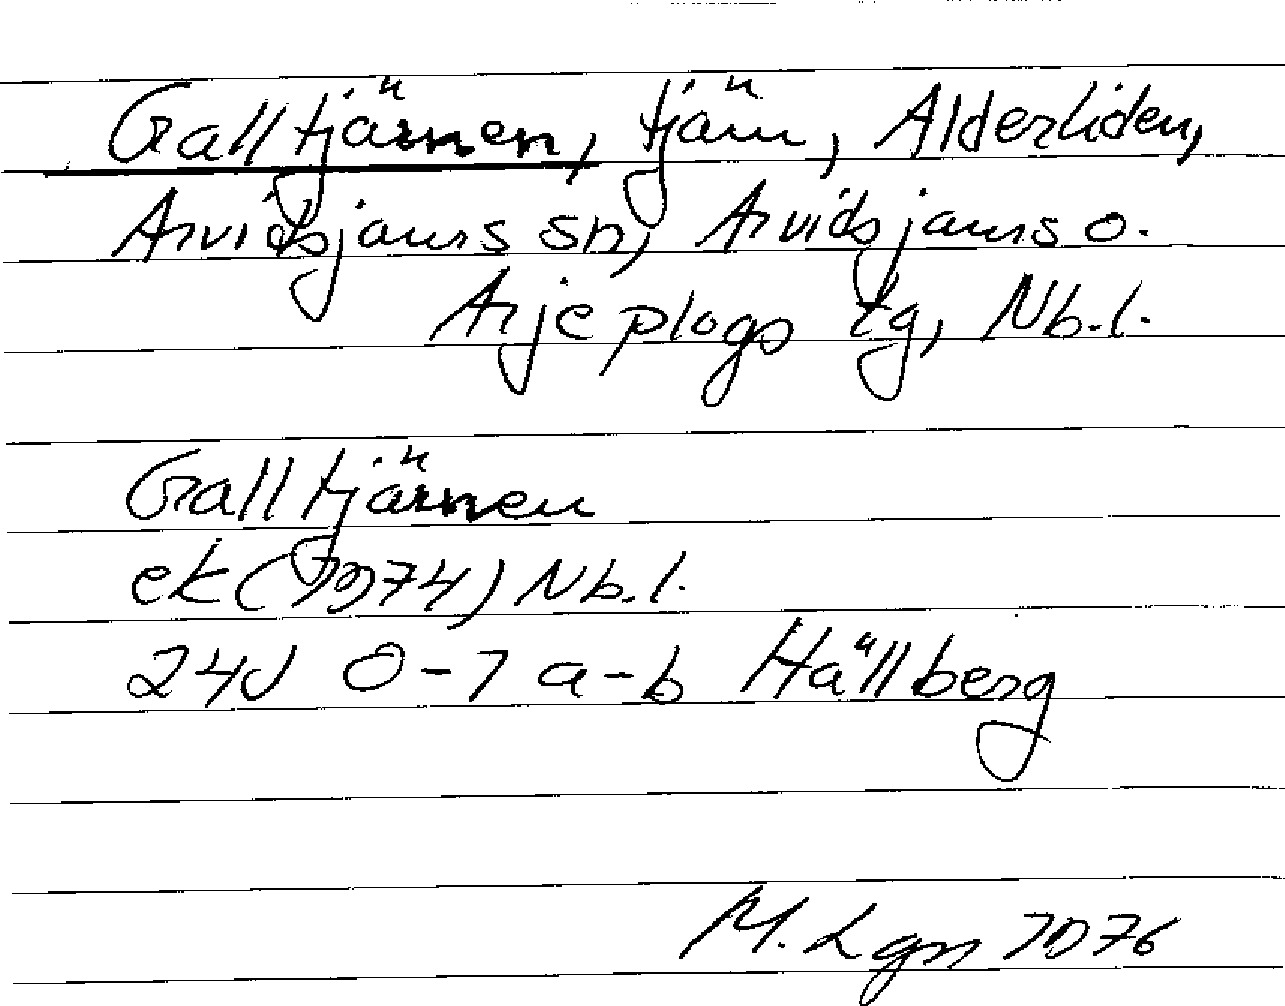 Galltjärnen, tjärn, Alderliden,
Arvidsjaurs sn, Arvidsjaurs o.
Arjeplogs tg, Nb.l.
Galltjärnen
ek (1974) Nb.l.
24J 0-1 a-b Hällberg
M. Lgn 1976